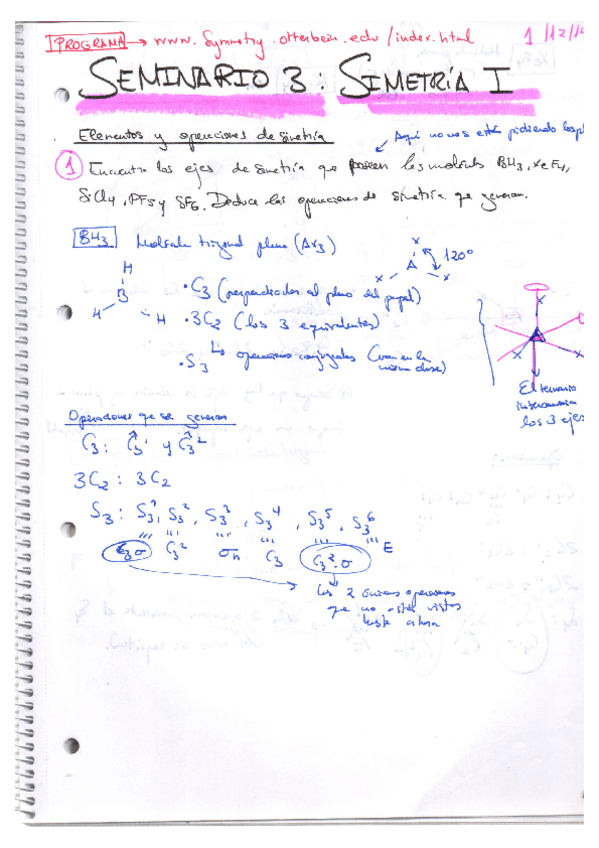 PROGRAMA → www.Symmetry.otterbein.edu/index.html 1/12/14
SEMINARIO 3: SIMETRÍA I
Elementos y operaciones de simetría
Aquí no nos están pidiendo los pl
1 Encuentra los ejes de simetría que poseen las moléculas BH3, XeF4,
SiCl4, PF5 y SF6. Deduce las operaciones de simetría que generan.
BH3 Molécula trigonal plana (AX3)
x
A
x x
120°
H
B
H H
• C3 (perpendicular al plano del papel)
• 3C2 (los 3 equivalentes)
↳ operaciones conjugadas (van en la misma clase)
• S3
x
x x
El ternario
intercambia
los 3 ejes
Operaciones que se generan
C3: Ĉ3¹ y Ĉ3²
3C2: 3C2
S3: S3¹, S3², S3³, S3⁴, S3⁵, S3⁶
C3σ C3² σh C3 C3²·σ E
Las 2 únicas operaciones
que no están vistas
hasta ahora